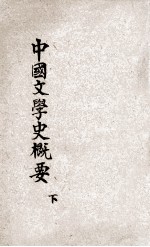 中國文學史概要
下